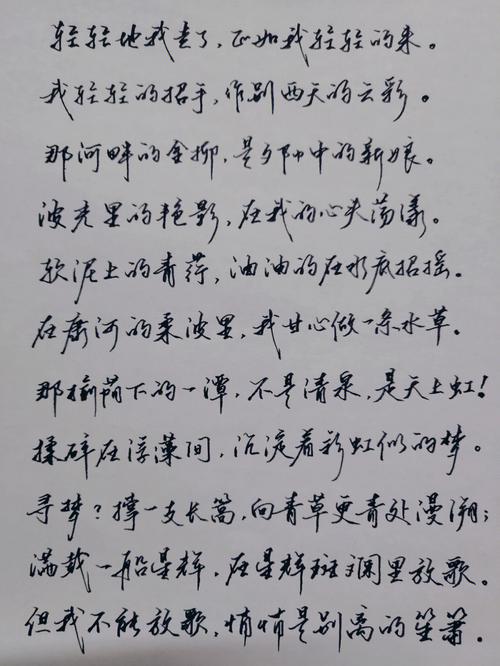 轻轻地我走了，正如我轻轻的来。
我轻轻的招手，作别西天的云彩。
那河畔的金柳，是夕阳中的新娘。
波光里的艳影，在我的心头荡漾。
软泥上的青荇，油油的在水底招摇。
在康河的柔波里，我甘心做一条水草。
那榆荫下的一潭，不是清泉，是天上虹！
揉碎在浮藻间，沉淀着彩虹似的梦。
寻梦？撑一支长篙，向青草更青处漫溯；
满载一船星辉，在星辉斑斓里放歌。
但我不能放歌，悄悄是别离的笙箫。